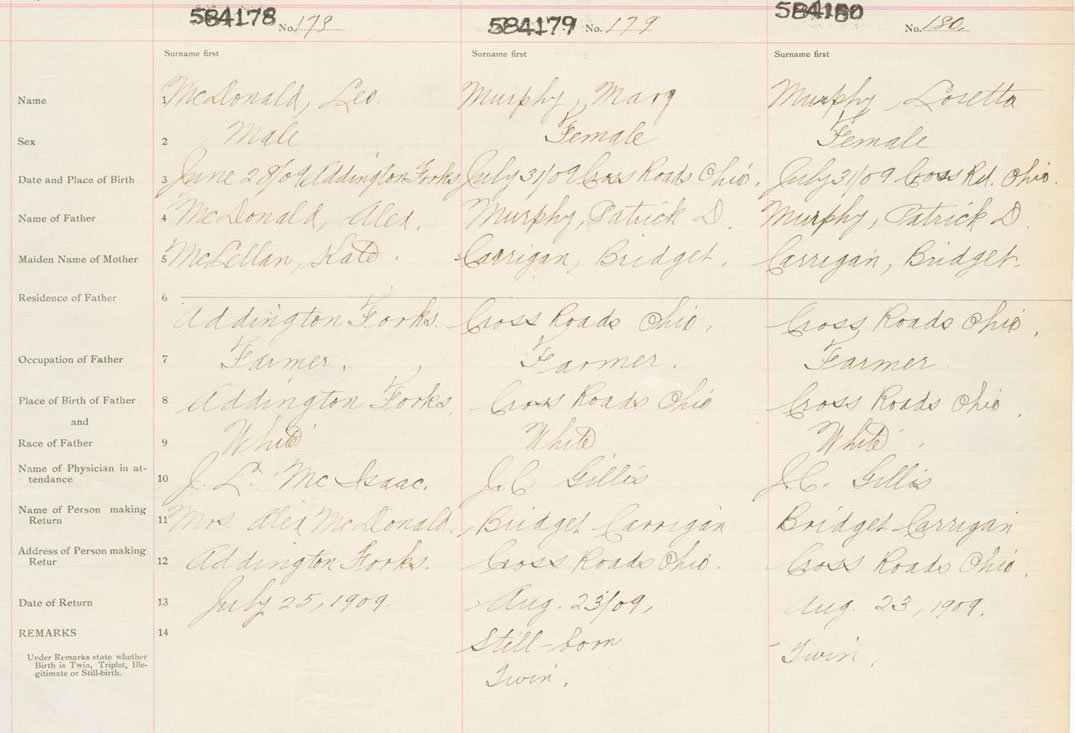 584178 No. 178 584179 No. 179 584180 No. 180.
Surname first Surname first Surname first
Name 1 McDonald, Leo. Murphy, Mary Murphy, Loretta
Sex 2 Male Female Female
Date and Place of Birth 3 June 28/09 Addington Forks July 31/09 Cross Roads Ohio. July 31/09 Cross Rd. Ohio.
Name of Father 4 McDonald, Alex. Murphy, Patrick D. Murphy, Patrick D.
Maiden Name of Mother 5 McLellan, Kate. Carrigan, Bridget. Carrigan, Bridget.
Residence of Father 6
Addington Forks. Cross Roads Ohio. Cross Roads Ohio.
Occupation of Father 7 Farmer. Farmer. Farmer
Place of Birth of Father 8 Addington Forks. Cross Roads Ohio Cross Roads Ohio.
and
Race of Father 9 White White White
Name of Physician in at-
tendance 10 J. L. McIsaac. J.C. Gillis J.C. Gillis
Name of Person making
Return 11 Mrs. Alex McDonald. Bridget Carrigan Bridget Carrigan
Address of Person making
Retur 12 Addington Forks. Cross Roads Ohio. Cross Roads Ohio.
Date of Return 13 July 25, 1909. Aug. 23/09, Aug. 23, 1909.
REMARKS 14 Still-born Twin.
Under Remarks state whether
Birth is Twin, Triplet, Ille-
gitimate or Still-birth.
Twin.